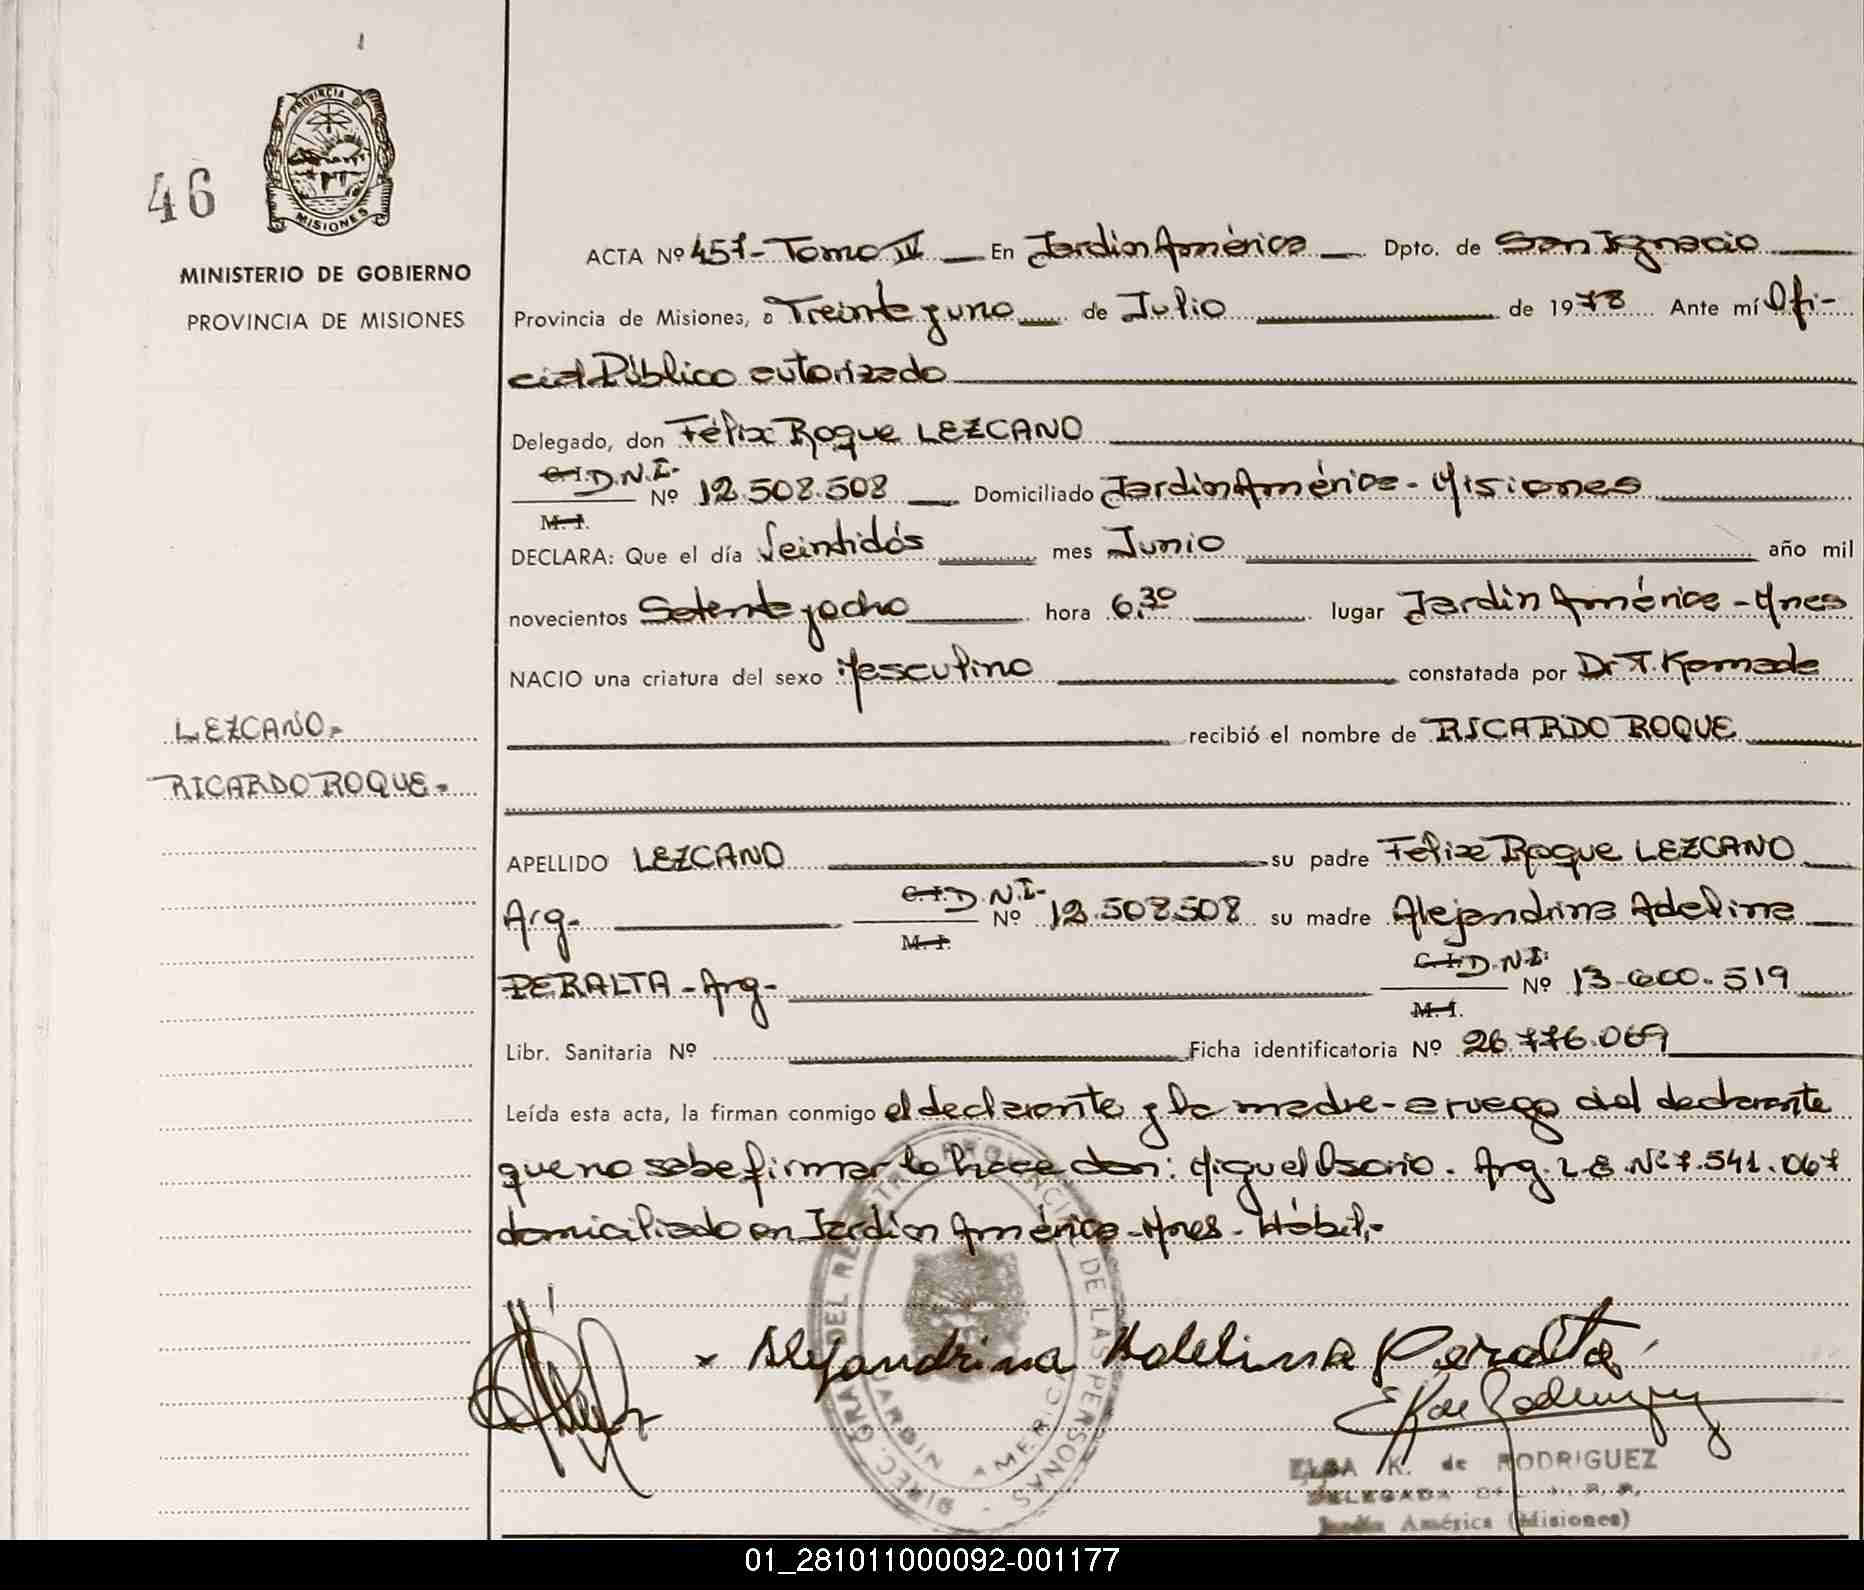 PROVINCIA DE
MISIONES
46
MINISTERIO DE GOBIERNO
PROVINCIA DE MISIONES
ACTA Nº 457- Tomo IV En Jardín América Dpto. de San Ignacio
Provincia de Misiones, a Treinta y uno de Julio de 1978 Ante mí Ofi-
cial Público autorizado
Delegado, don Félix Roque LEZCANO
C.I. D.N.I- Nº 12.508.508 Domiciliado Jardín América - Misiones
M. I.
DECLARA: Que el día Veintidós mes Junio año mil
novecientos Setenta y ocho hora 6.30 lugar Jardín América - Mnes
NACIO una criatura del sexo Masculino constatada por Dr.
LEZCANO.- recibió el nombre de RICARDO ROQUE
RICARDO ROQUE.-
APELLIDO LEZCANO su padre Félix Roque LEZCANO
Arg. C.I. D.N.I- Nº 12.508.508 su madre Alejandrina Adelina
M. I.
PERALTA - Arg- C.I. D.N.I. Nº 13-600.519
M. I.
Libr. Sanitaria Nº Ficha identificatoria Nº 26.776.069
Leída esta acta, la firman conmigo el declarante y la madre- a ruego del declarante
que no sabe firmar lo hace don: Miguel Osorio. Arg. L.E. Nº 7.541.067
domiciliado en Jardín América - Mnes - Hábil.-
x Alejandrina Adelina Peralta
DIREC. GRAL DEL REGISTRO PROVINCIAL DE LAS PERSONAS -
JARDIN AMERICA
ELSA K. de RODRIGUEZ
DELEGADA
Jardín América (Misiones)
01_281011000092-001177